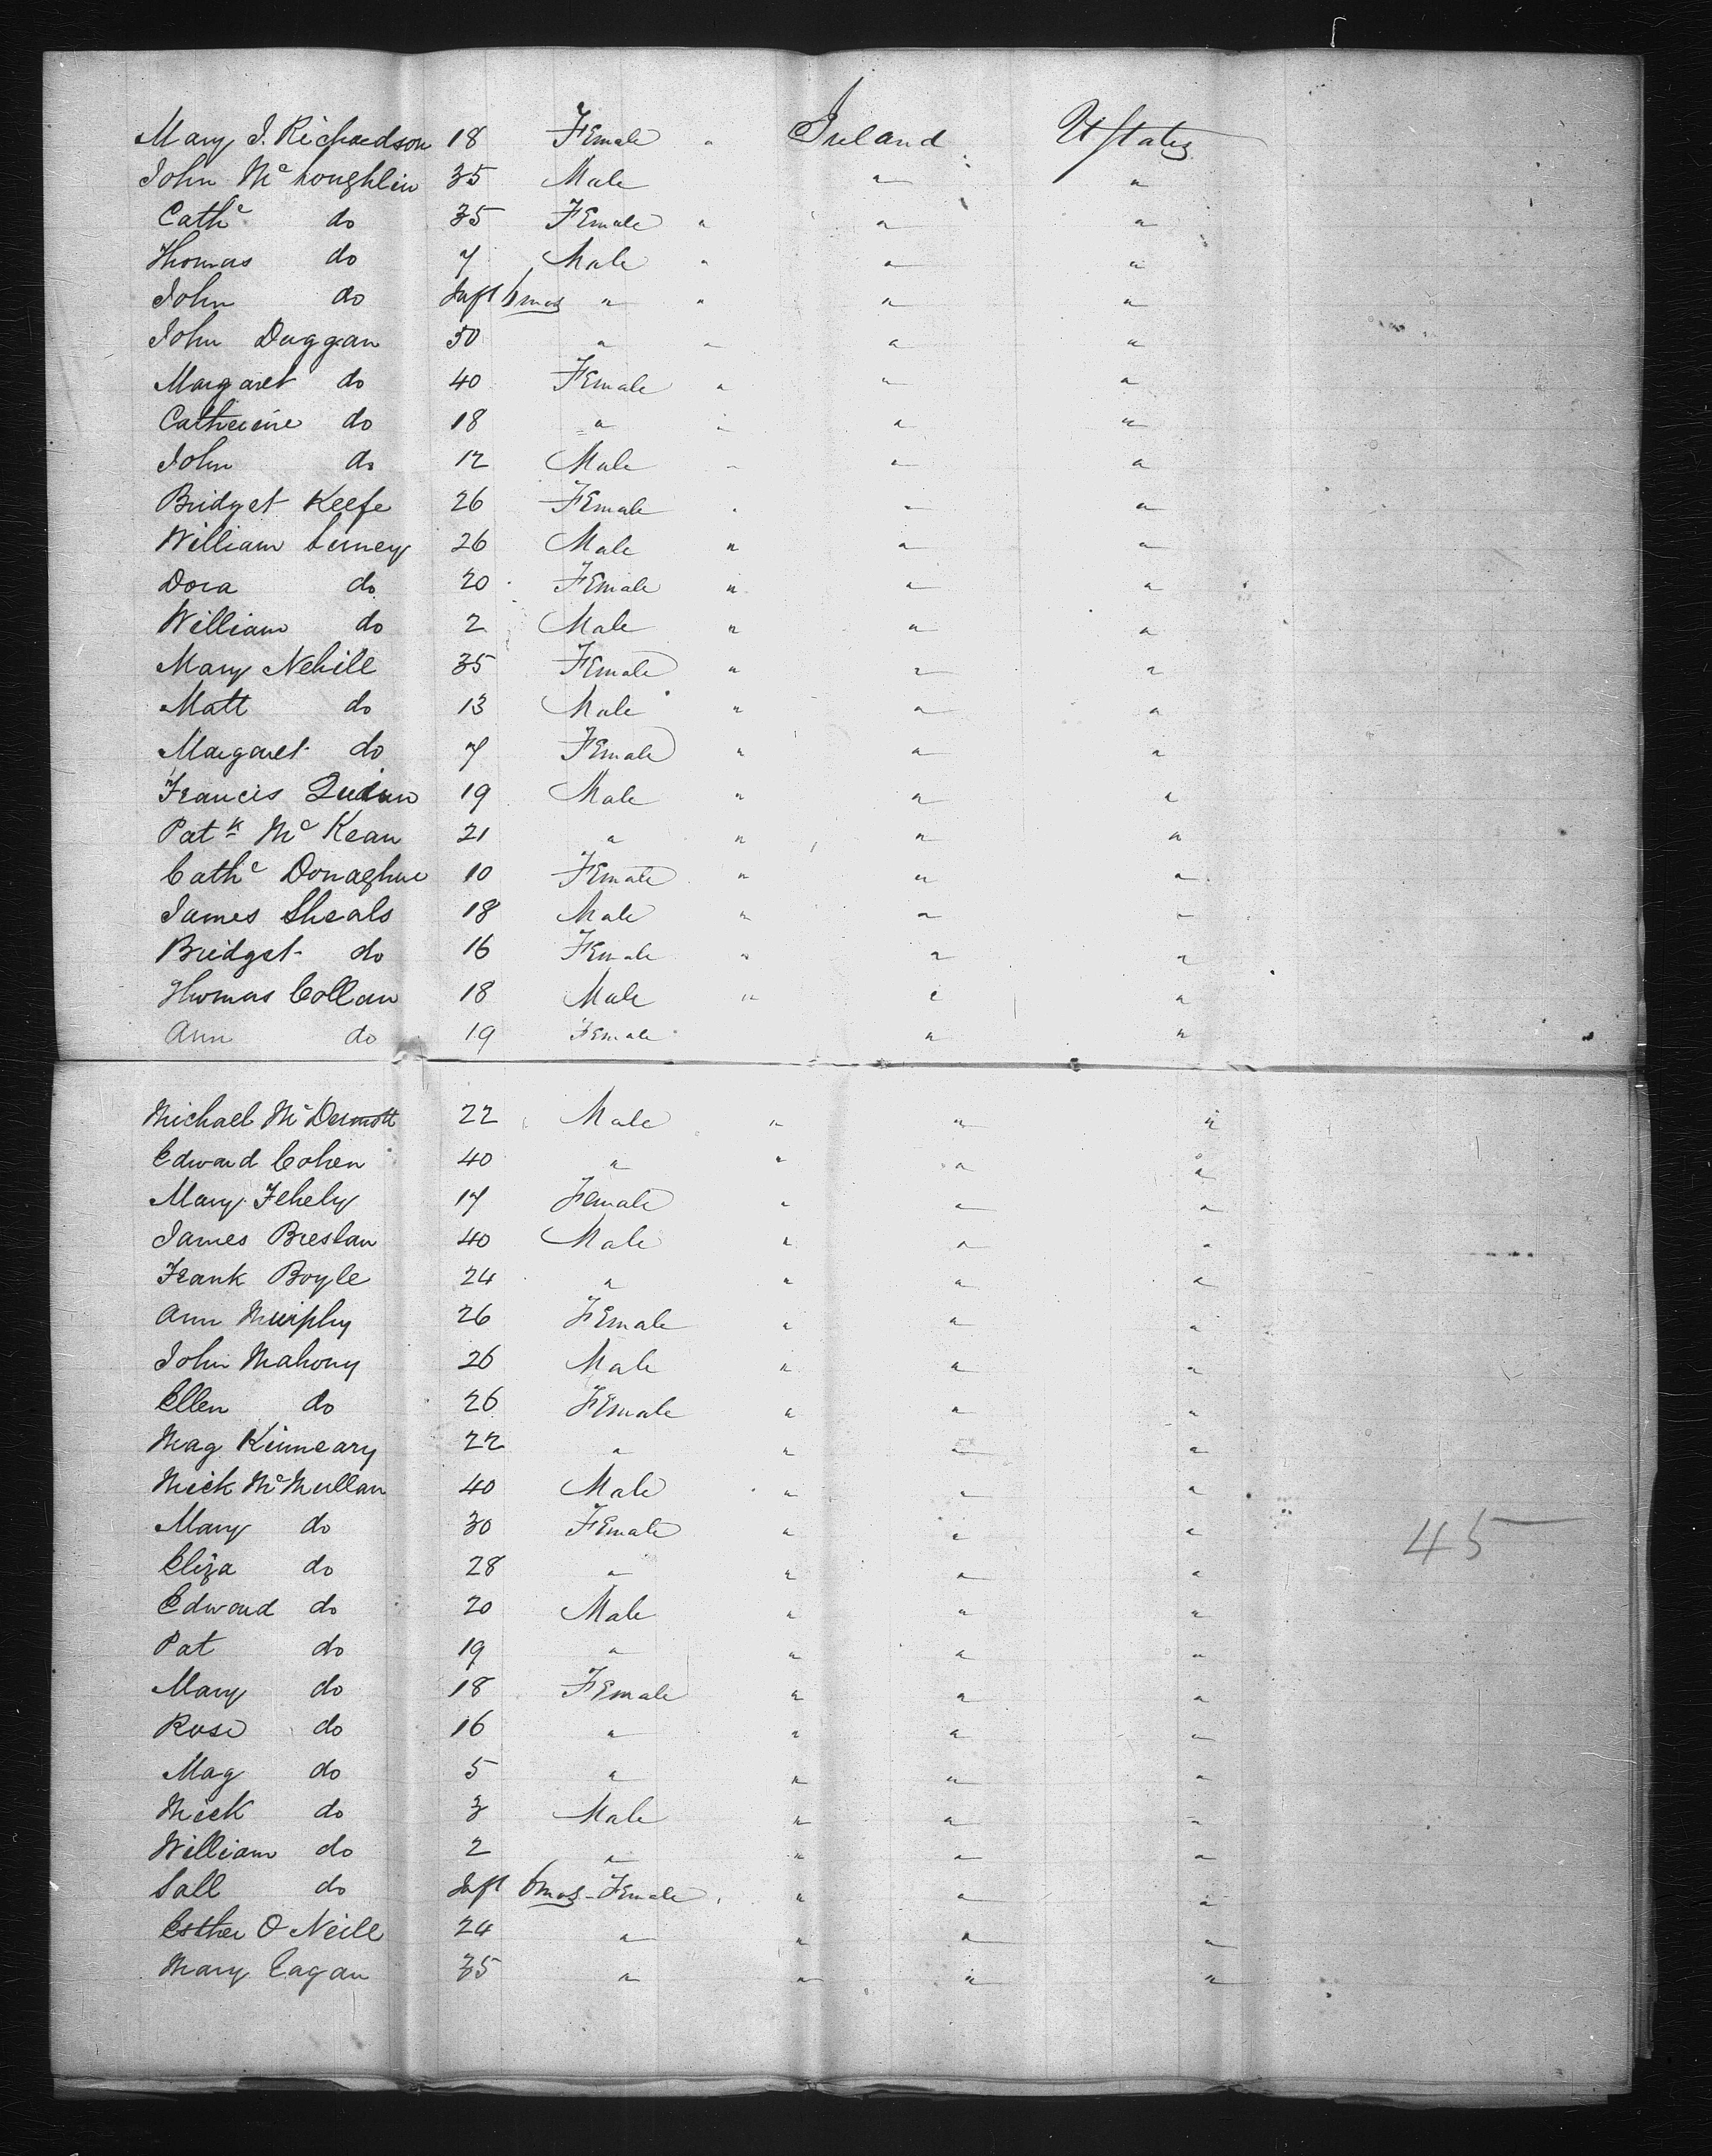 Mary J. Richardson 18 Female " Ireland UStates
John Mc Loughlin 35 Male " "
Cathe do 35 Female " " "
Thomas do 7 Male " " "
John do Inft 6 mos " " " "
John Duggan 50 " " " "
Margaret do 40 Female " " "
Catherine do 18 " " " "
John do 12 Male " " "
Bridget Keefe 26 Female " " "
William 26 Male " " "
Dora do 20 Female " " "
William do 2 Male " " "
Mary Nehill 35 Female " " "
Matt do 13 Male " " "
Margaret do 7 Female " " "
Francis Quinn 19 Male " " "
Patk Mc Kean 21 " " " "
Cathe Donaghue 10 Female " " "
James Sheals 18 Male " " "
Bridget do 16 Female " " "
Thomas Collan 18 Male " " "
Ann do 19 Female " "
Michael Mc Dermott 22 Male " " "
Edward Cohen 40 " " " "
Mary Fehely 17 Female " " "
James Breslan 40 Male " " "
Frank Boyle 24 " " " "
Ann Murphy 26 Female " " "
John Mahony 26 Male " " "
Ellen do 26 Female " " "
Mag Kinneary 22 " " " "
Mick Mc Mullan 40 Male " " "
Mary do 30 Female " " "
Eliza do 28 " " " "
Edward do 20 Male " " "
Pat do 19 " " " "
Mary do 18 Female " " "
Rose do 16 " " " "
Mag do 5 " " " "
Mick do 3 Male " " "
William do 2 " " " "
Sall do Inft 6 mos - Female " " "
Esther O Neill 24 " " " "
Mary Eagan 35 " " " "
45